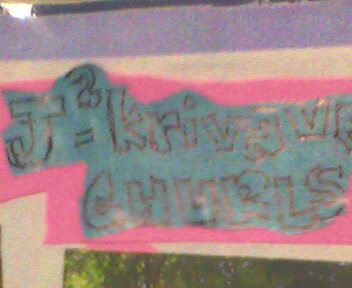 J²=krivava
CHURLS